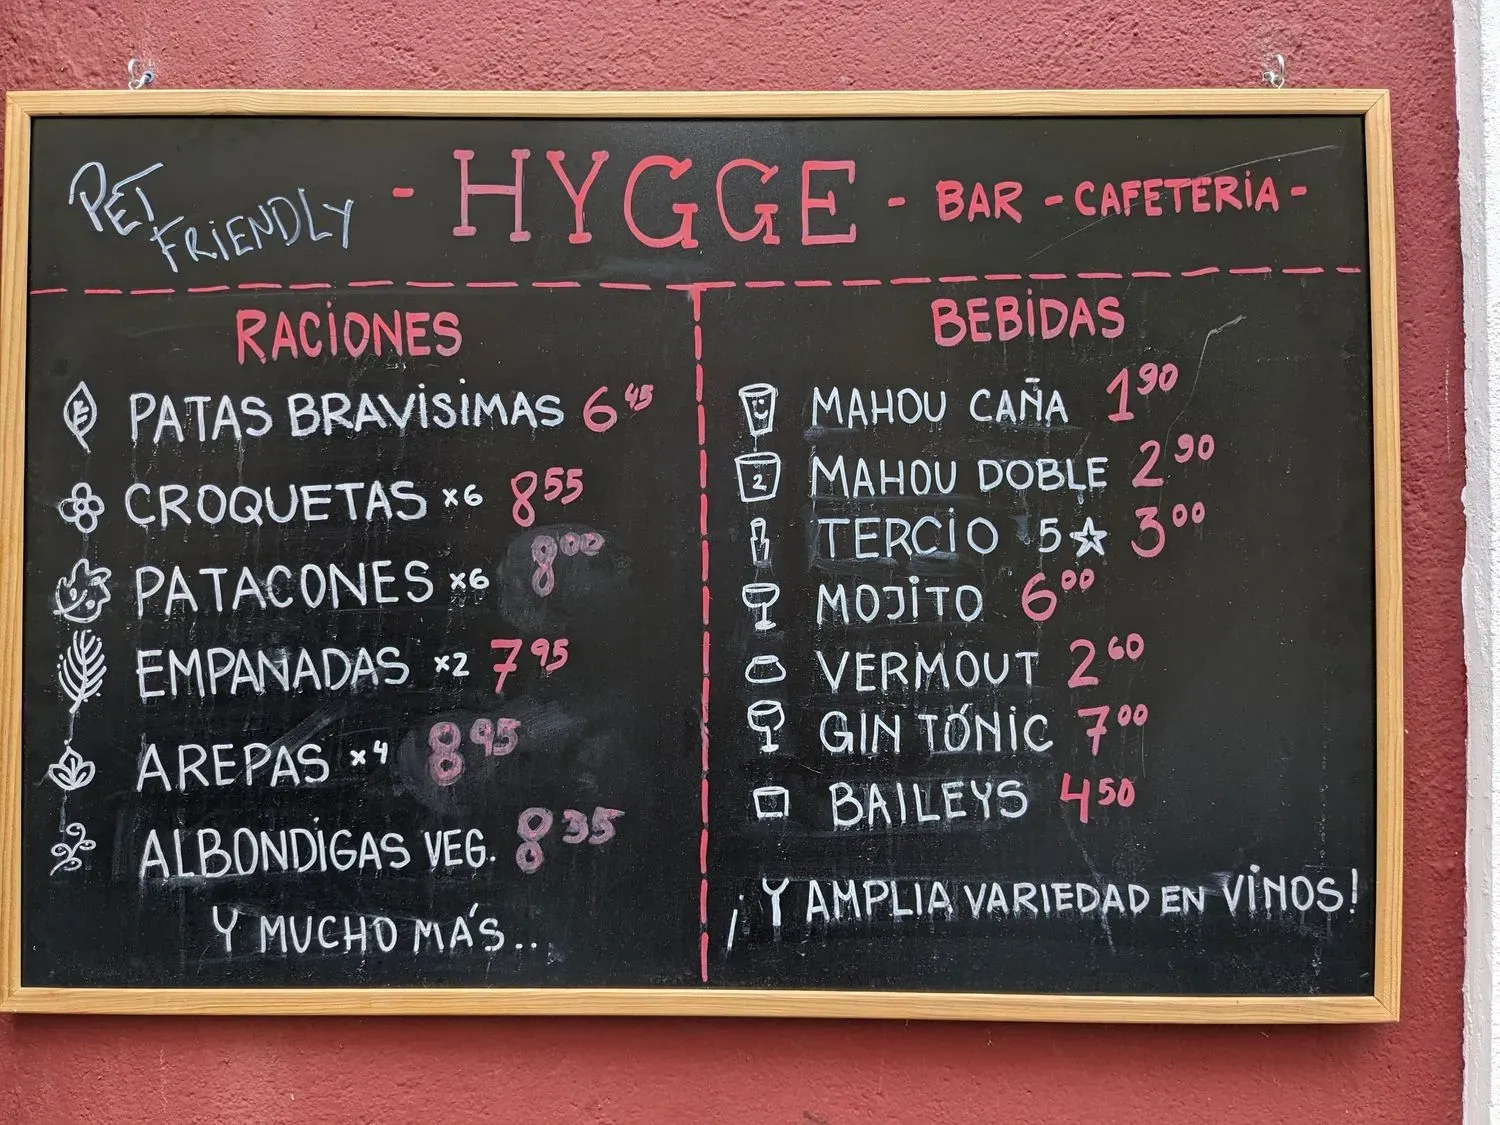 PET
FRIENDLY
- HYGGE - BAR - CAFETERIA -
RACIONES
PATAS BRAVISIMAS 6 45
CROQUETAS x6 8 55
PATACONES x6 8 00
EMPANADAS x2 7 95
AREPAS x4 8 95
ALBONDIGAS VEG. 8 35
Y MUCHO MÁS...
BEBIDAS
MAHOU CAÑA 1 90
2 MAHOU DOBLE 2 90
TERCIO 5☆ 3 00
MOJITO 6 00
VERMOUT 2 60
GIN TÓNIC 7 00
BAILEYS 4 50
¡Y AMPLIA VARIEDAD EN VINOS!